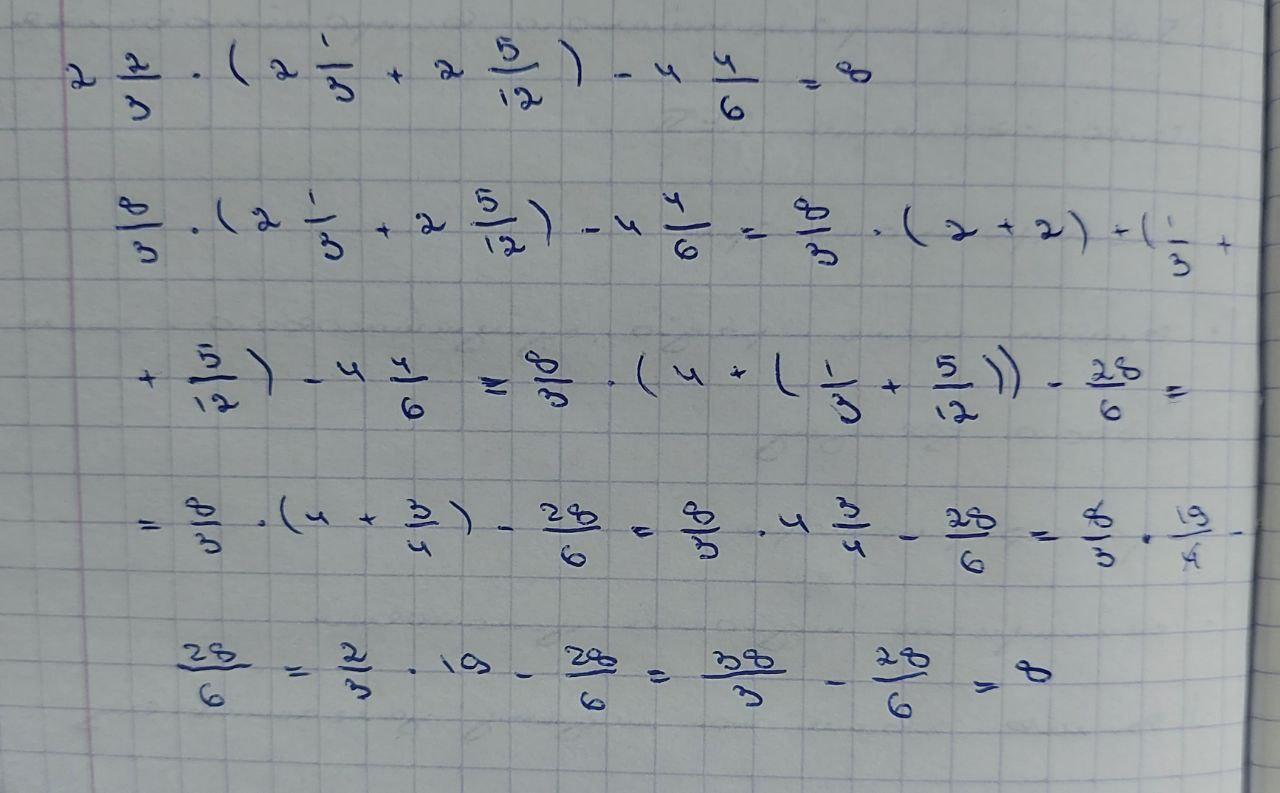 2 2/3 · (2 1/3 + 2 5/12) - 4 4/6 = 8
8/3 · (2 1/3 + 2 5/12) - 4 4/6 = 8/3 · (2 + 2) + (1/3 +
+ 5/12) - 4 4/6 = 8/3 · (4 + (1/3 + 5/12)) - 28/6 =
= 8/3 · (4 + 3/4) - 28/6 = 8/3 · 4 3/4 - 28/6 = 8/3 · 19/4 -
28/6 = 2/3 · 19 - 28/6 = 38/3 - 28/6 = 8